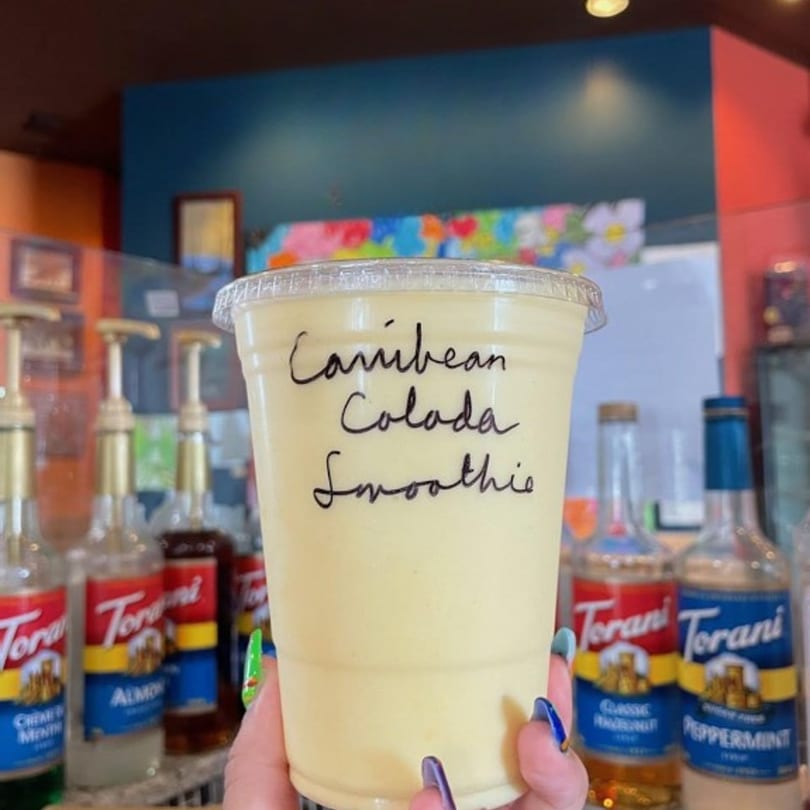 Carribean
Colada
Smoothie
Torani
CRÈME DE
MENTHE
Torani
ALMOND
Torani
CLASSIC
HAZELNUT
Torani
PEPPERMINT